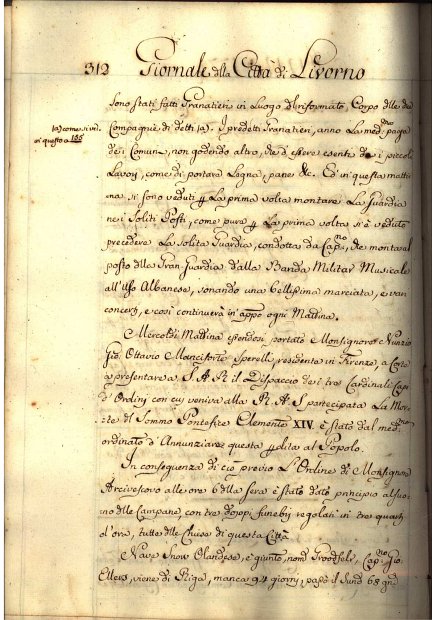 312 Giornale della Città di Livorno
sono stati fatti Granatieri in Luogo del riformato, Corpo delle due
(a) come si vi- Compagnie di detti (a). I predetti Granatieri, anno La med.ma paga
di questo a 155 de i Comuni, non godendo altro, che d'essere esenti da i piccoli
Lavori, come: di portare Legna, pane &c. Ed in questa matti-
na si sono veduti p La prima volta montare La Guardia
nei Soliti Posti, come pure p La prima volta si è veduto
precedere La solita Guardia, condotta da Cap.no, che monta al
posto della Gran Guardia dalla Banda Militar Musicale
all'Uso Albanese, sonando una bellissima marciata, e varj
concerti, e così continuerà in app.o ogni Mattina.
Mercoldì Mattina essendosi portato Monsignore Nunzio
Gio. Ottavio Manciforte Sperelli, residente in Firenze, a Corte
a presentare a S.A.R. il Dispaccio dei tre Cardinali Capi
d'Ordini con cui veniva alla R.A.S. partecipata La Mor-
te del Sommo Pontefice Clemente XIV. È stato dal med.mo
ordinato d'Annunziare questa perdita al Popolo.
In conseguenza di ciò previo L'Ordine di Monsignore
Arcivescovo alle ore 6 della sera è stato dato principio al suo-
no delle Campane con tre doppj funebri regolati in tre quarti
d'ora, tutte delle Chiese di questa Città.
Nave Snow Olandese, è giunto, nom.
Cap.no Gio.
Ellers, viene di Riga, manca 94 giorni, passò il Sund 68 gni